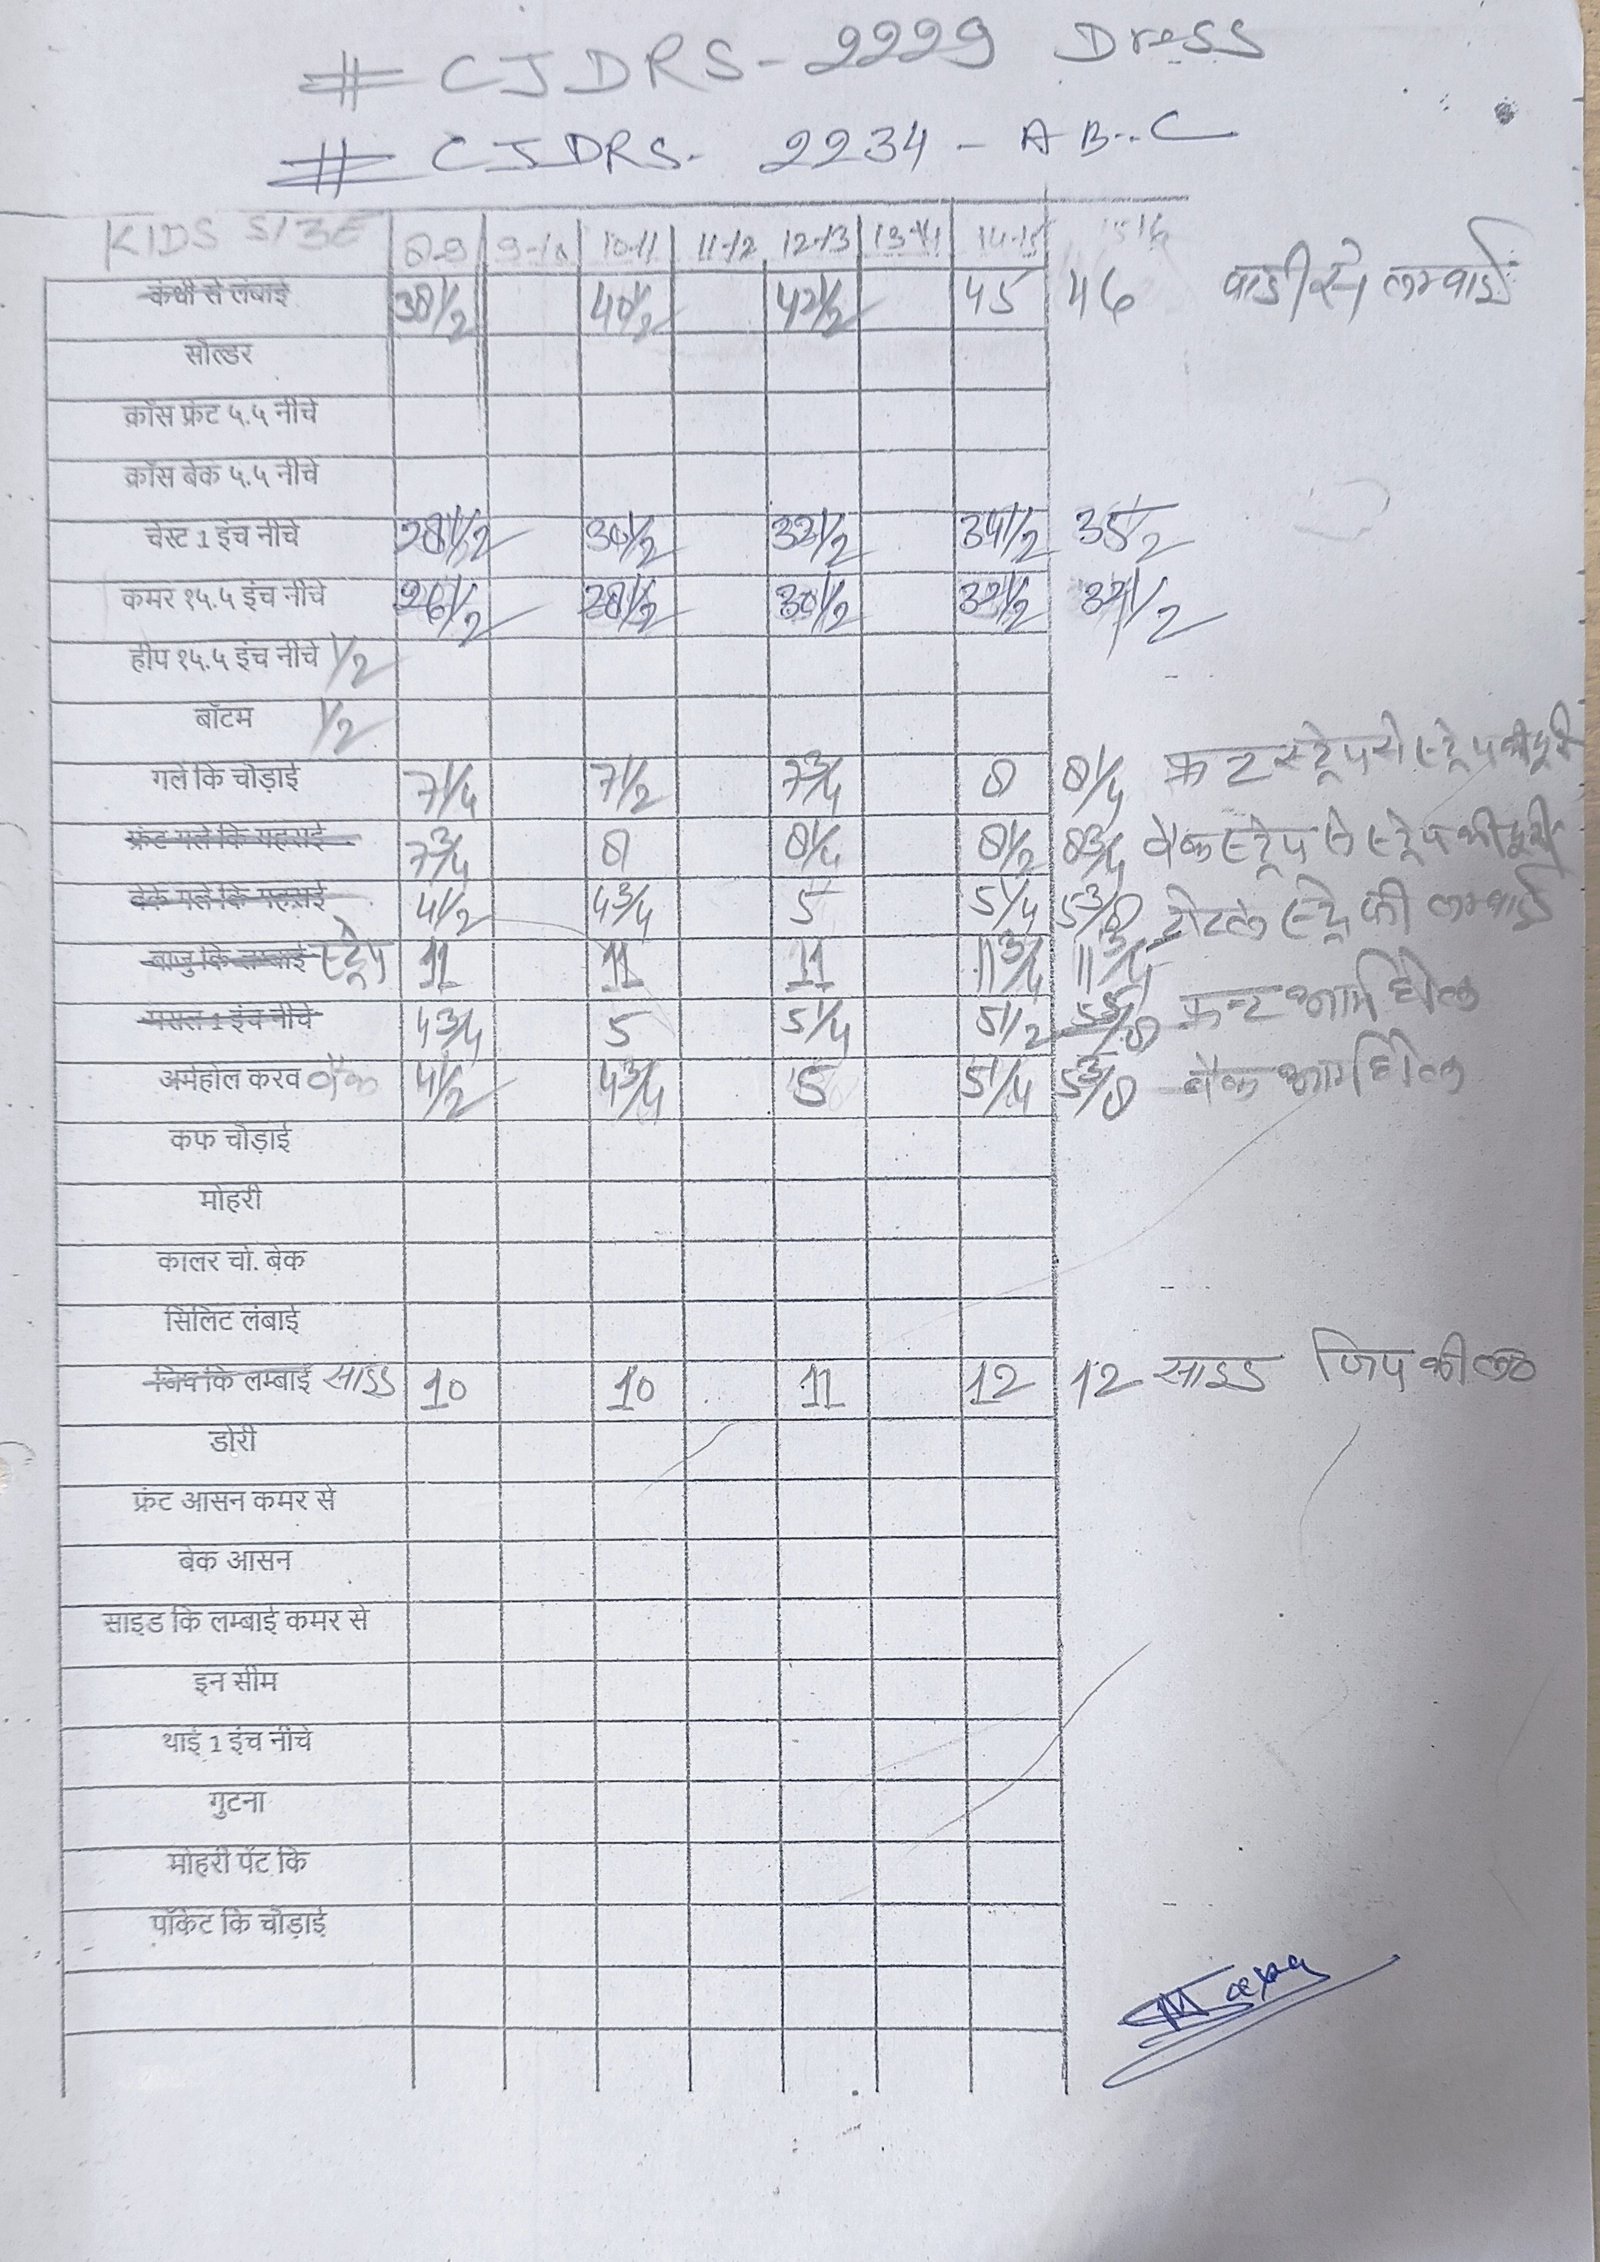 # CJDRS-2229 Dress
# CJDRS- 2234 - A B-.C
KIDS SIZE 8-9 9-10 10-11 11-12 12-13 13-14 14-15 15-16
कंधी से लंबाई 38 1/2 40 1/2 42 1/2 45 46 लम्बाई
सोल्डर
क्रॉस फ्रंट ५.५ नीचे
क्रॉस बेक ५.५ नीचे
चेस्ट 1 इंच नीचे 28 1/2 30 1/2 32 1/2 34 1/2 35 1/2
कमर १५.५ इंच नीचे 26 1/2 28 1/2 30 1/2 32 1/2 1/2
हीप १५.५ इंच नीचे 1/2
बॉटम 1/2
गले कि चौड़ाई 7 1/4 7 1/2 7 3/4 8 8 1/4 फ्रन्ट स्ट्रेप से स्ट्रेप की दूरी
फ्रंट गले कि गहराई 7 3/4 8 8 1/4 8 1/2 8 3/4 बैक स्ट्रेप से स्ट्रेप की दूरी
बेक गले कि गहराई 4 1/2 4 3/4 5 5 1/4 5 3/8
बाजु कि लम्बाई स्ट्रेप 11 11 11 11 3/4 11 3/4 टोटल स्ट्रेप की लम्बाई
मसल 1 इंच नीचे 4 3/4 5 5 1/4 5 1/2 5 5/8 फ्रन्ट आर्महोल
अर्महोल करव बैक 4 1/2 4 3/4 5 5 1/4 5 3/8 बैक आर्महोल
कफ चौड़ाई
मोहरी
कालर चो. बेक
सिलिट लंबाई
जिप कि लम्बाई साइड 10 10 11 12 12 साइड जिप की ल०
डोरी
फ्रंट आसन कमर से
बेक आसन
साइड कि लम्बाई कमर से
इन सीम
थाई 1 इंच नीचे
गुटना
मोहरी पेंट कि
पॉकेट कि चौड़ाई